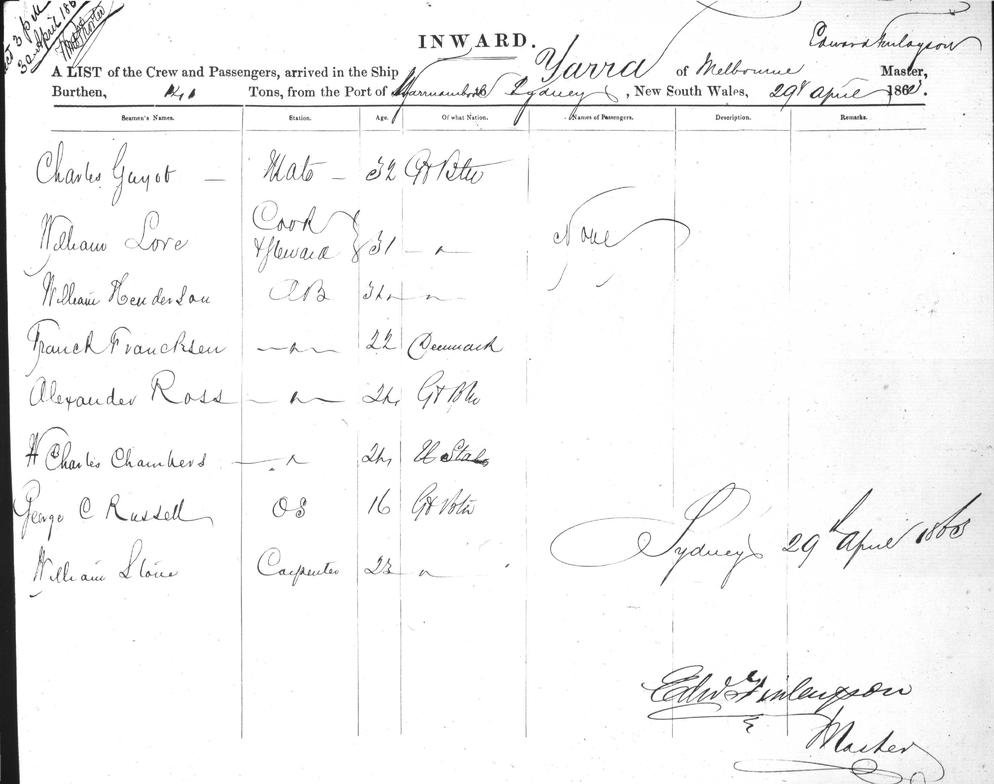 3 pm
30 April 186
INWARD.
Edward Finlayson
A LIST of the Crew and Passengers, arrived in the Ship Yarra of Melbourne Master,
Burthen, 141 Tons, from the Port of Warrnambool Sydney, New South Wales, 29th April 1863.
Seamen's Names. Station. Age. Of what Nation. Names of Passengers. Description. Remarks.
Charles Guyot — Mate — 32 Gt Btn
William Love Cook & Steward } 31 — " None
William Henderson AB 34 — "
Franck Francksen — " — 22 Denmark
Alexander Ross — " — 24 Gt Btn
W Charles Chambers — " 24 U States
George C Russell OS 16 Gt Btn
Sydney 29th April 1863
William Stone Carpenter 23 — "
Edwd Finlayson
Master